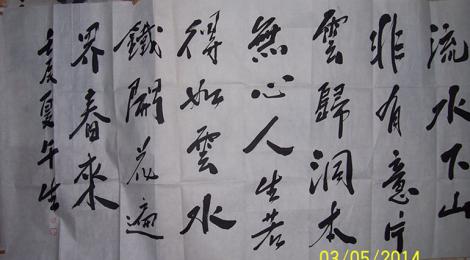 流水下山
非有意片
雲歸洞本
無心人生若
得如雲水
鐵開花遍
界春來
壬辰夏午生
03/05/2014